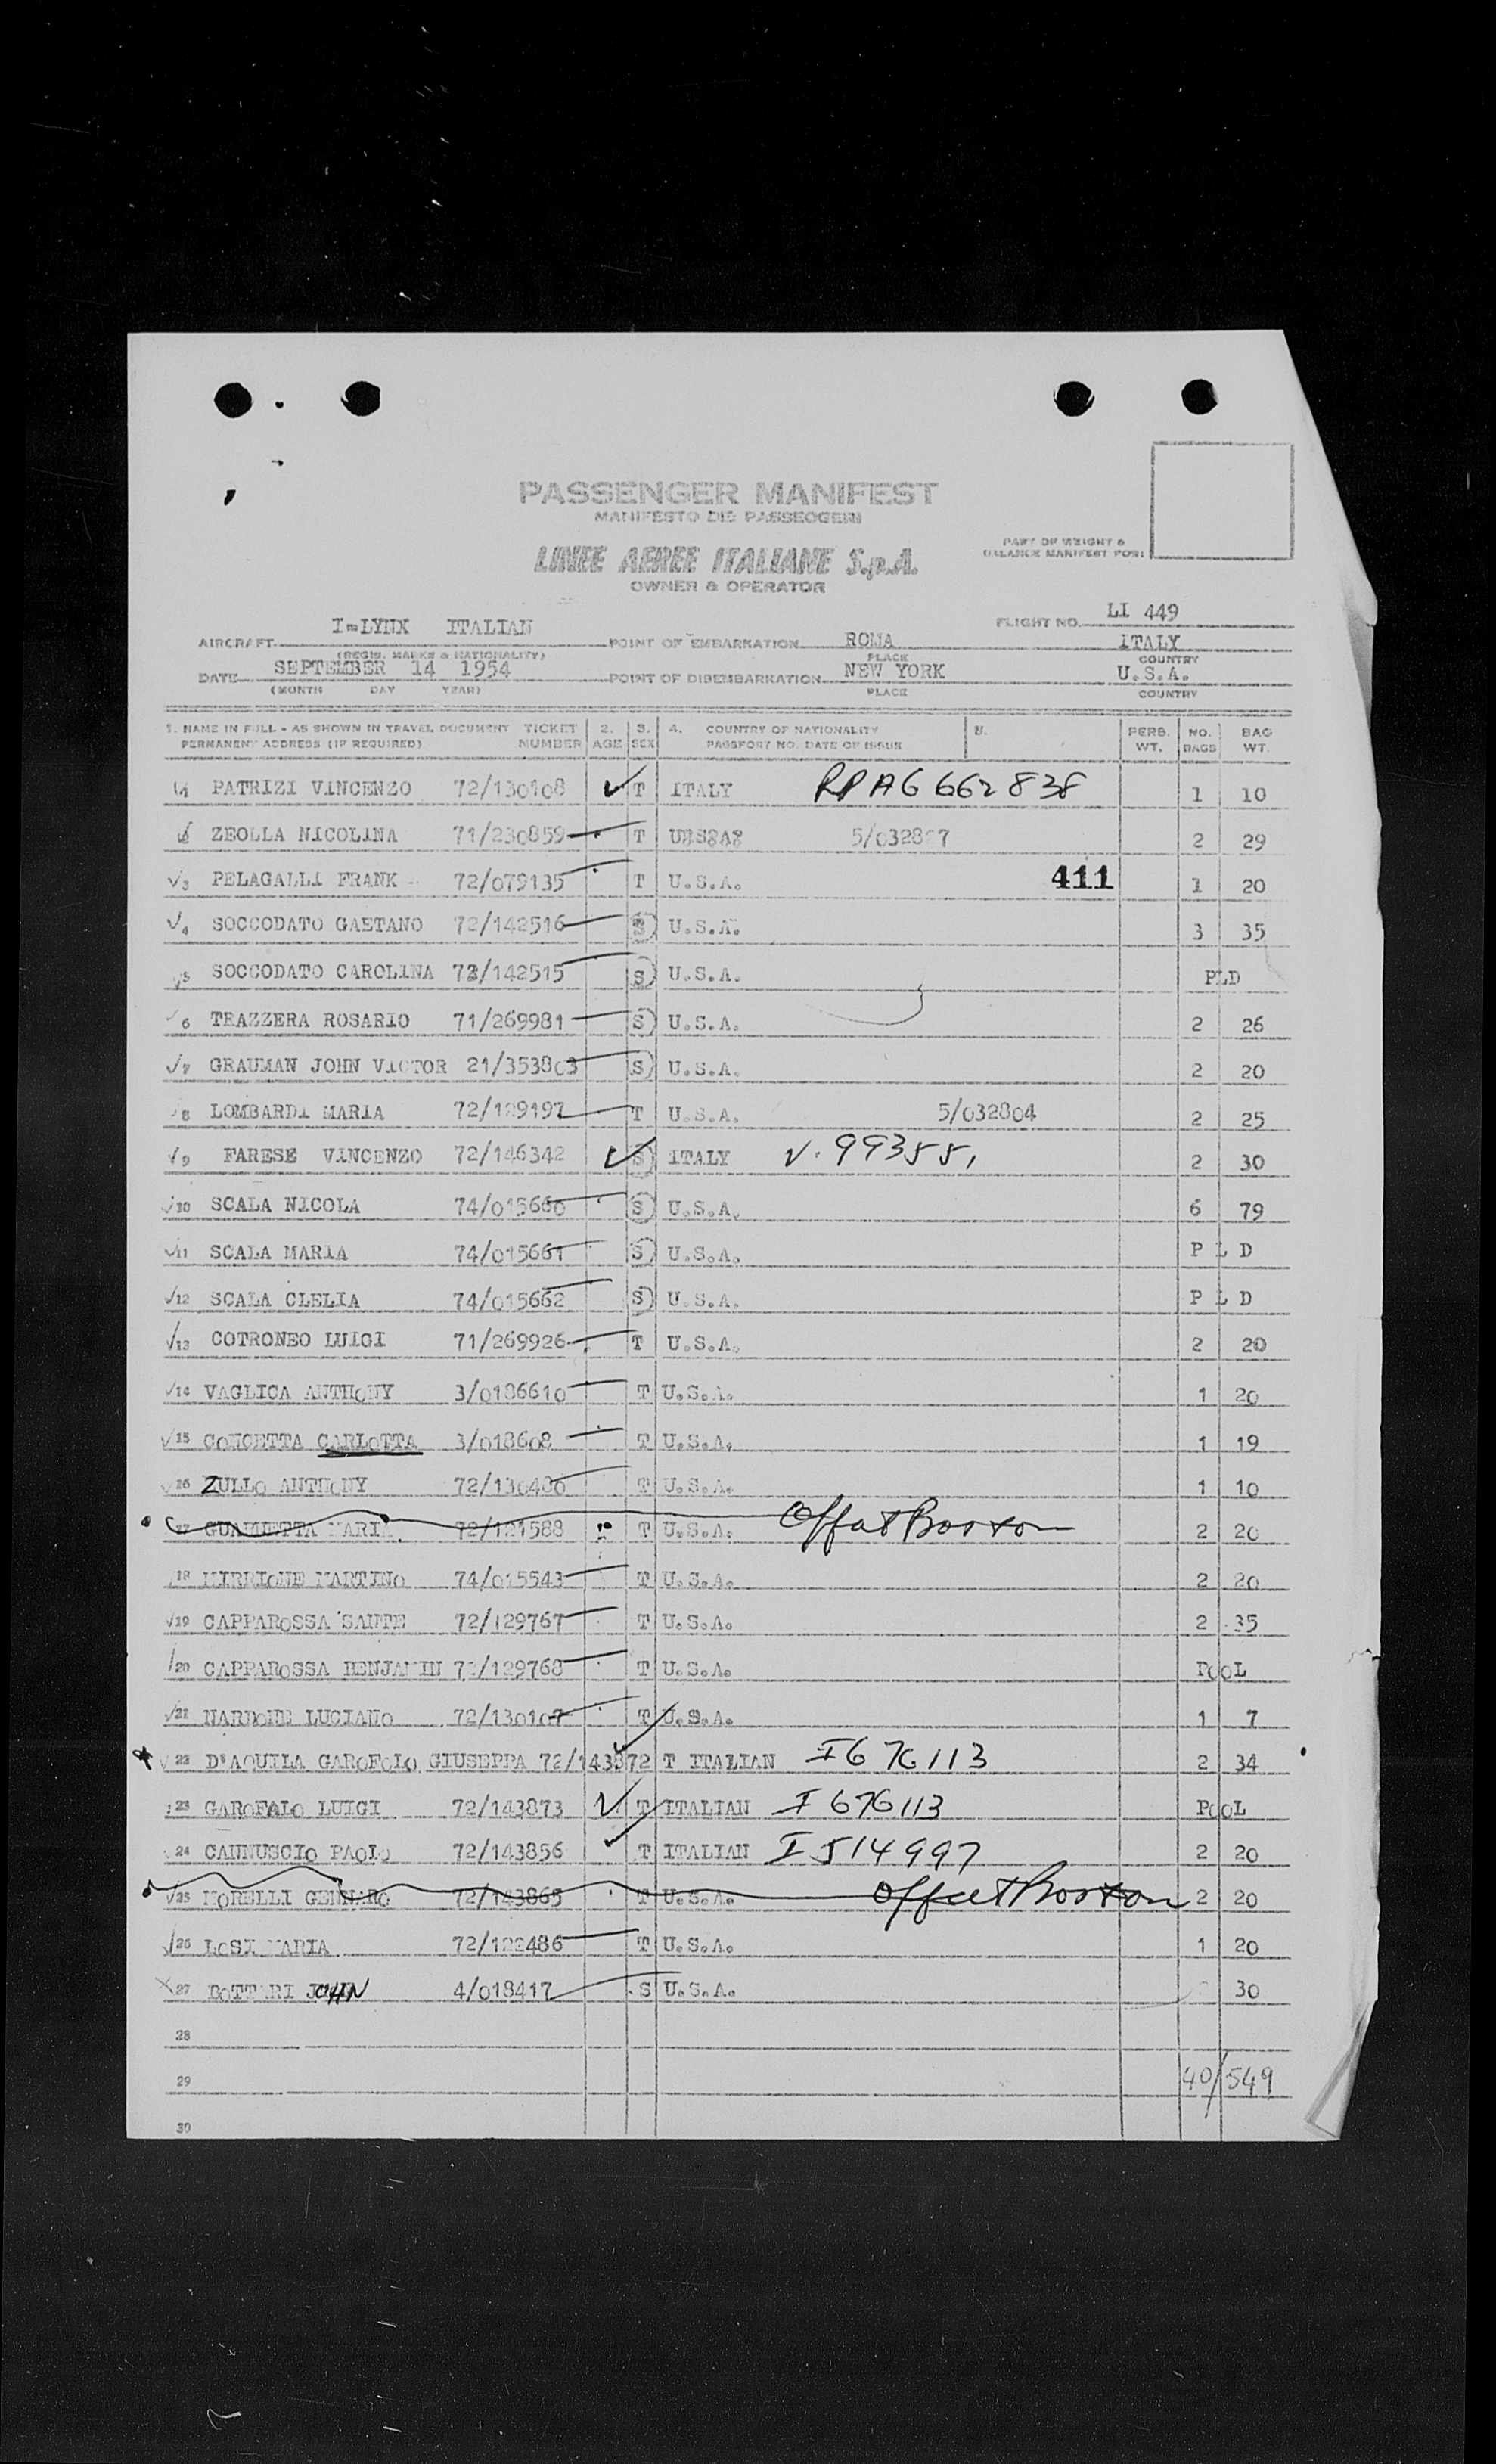 PASSENGER MANIFEST
MANIFESTO DIE PASSEOGERI
LINEE AEREE ITALIANE S.p.A.
OWNER & OPERATOR
PART OF WEIGHT & BALANCE MANIFEST FOR:
FLIGHT NO. LI 449
AIRCRAFT I-LYNX ITALIAN POINT OF EMBARKATION ROMA ITALY
(REGIS. MARKS & NATIONALITY) PLACE COUNTRY
DATE SEPTEMBER 14 1954 POINT OF DISEMBARKATION NEW YORK U.S.A.
(MONTH DAY YEAR) PLACE COUNTRY
1. NAME IN FULL - AS SHOWN IN TRAVEL DOCUMENT TICKET 2. 3. 4. COUNTRY OF NATIONALITY 5. PERS. NO. BAG
PERMANENT ADDRESS (IF REQUIRED) NUMBER AGE SEX PASSPORT NO. DATE OF ISSUE WT. BAGS WT.
PATRIZI VINCENZO 72/130108 T ITALY RPA6662838 1 10
ZEOLLA NICOLINA 71/230859 T 2 29
3 PELAGALLI FRANK 72/079135 T U.S.A. 411 1 20
4 SOCCODATO GAETANO 72/142516 S U.S.A. 3 35
5 SOCCODATO CAROLINA 72/142515 S U.S.A. PLD
6 TRAZZERA ROSARIO 71/269981 S U.S.A. 2 26
7 GRAUMAN JOHN VICTOR 21/353803 S U.S.A. 2 20
8 LOMBARDI MARIA 72/129197 T U.S.A. 5/032804 2 25
9 FARESE VINCENZO 72/146342 S ITALY V. 99355, 2 30
10 SCALA NICOLA 74/015660 S U.S.A. 6 79
11 SCALA MARIA 74/015661 S U.S.A. P L D
12 SCALA CLELIA 74/015662 S U.S.A. P L D
13 COTRONEO LUIGI 71/269926 T U.S.A. 2 20
14 VAGLICA ANTHONY 3/0186610 T U.S.A. 1 20
15 CONCETTA CARLOTTA 3/018608 T U.S.A. 1 19
16 ZULLO ANTHONY 72/130480 T U.S.A. 1 10
17 MARIA 72/121588 T U.S.A. Off at Boston 2 20
18 MIRRIONE MARTINO 74/015543 T U.S.A. 2 20
19 CAPPAROSSA SANTE 72/129767 T U.S.A. 2 35
20 CAPPAROSSA BENJAMIN 72/129768 T U.S.A. POOL
21 NARDONE LUCIANO 72/130107 T U.S.A. 1 7
22 D'AQUILA GAROFOLO GIUSEPPA 72/143872 T ITALIAN I676113 2 34
23 GAROFALO LUIGI 72/143873 T ITALIAN I 676113 POOL
24 CANNUSCIO PAOLO 72/143856 T ITALIAN I 514997 2 20
25 MORELLI GENNARO 72/143865 T U.S.A. Off at Boston 2 20
26 LOSI MARIA 72/122486 T U.S.A. 1 20
27 BOTTARI JOHN 4/018417 S U.S.A. 30
28
29 40/549
30